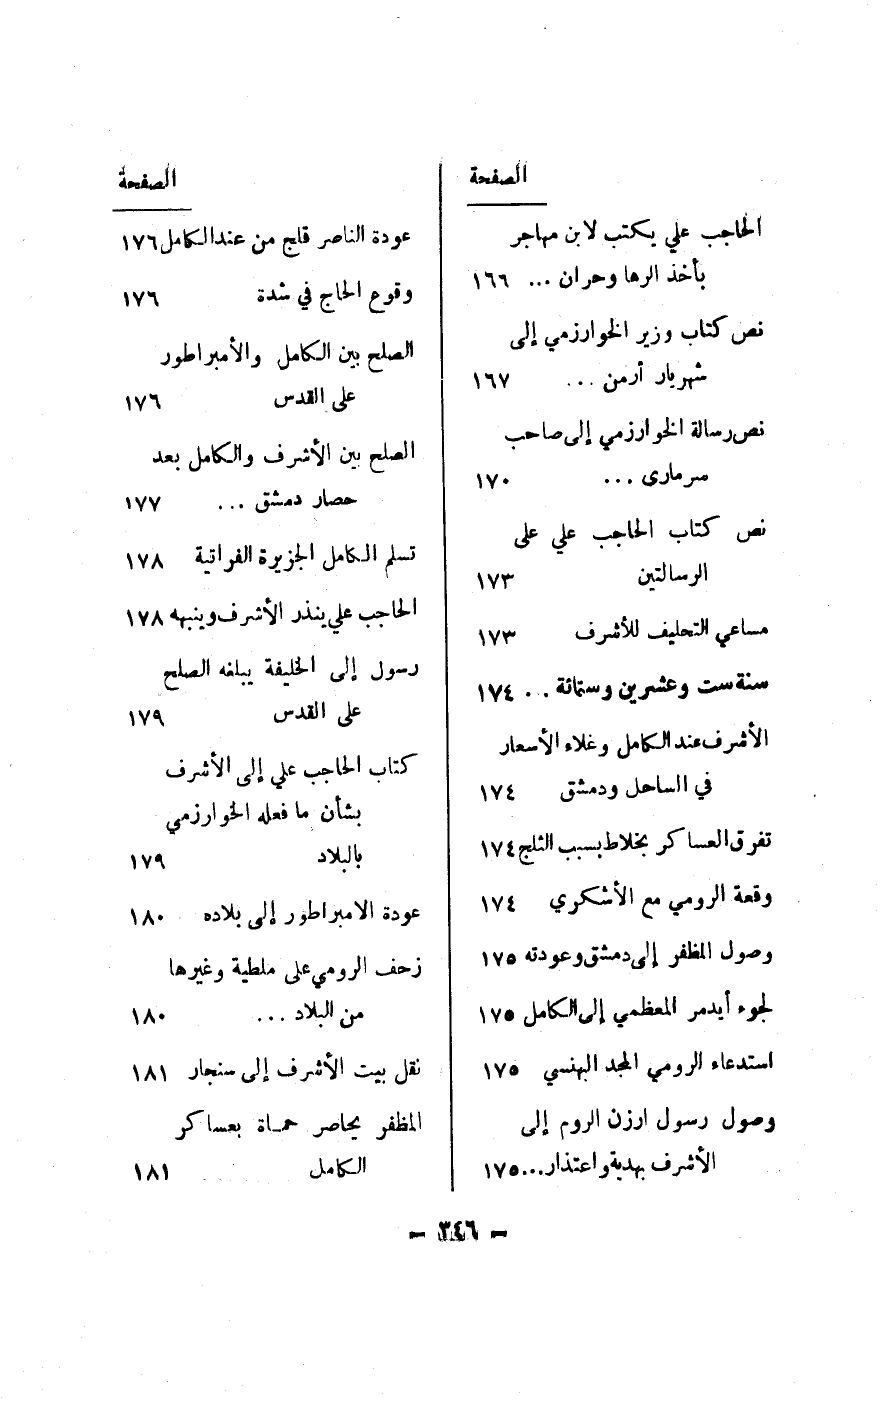 الصفحة
الحاجب علي يكتب لابن مهاجر
بأخذ الرها وحران ... ١٦٦
نص كتاب وزير الخوارزمي إلى
شهريار أرمن ... ١٦٧
نص رسالة الخوارزمي إلى صاحب
سرمارى ... ١٧٠
نص كتاب الحاجب علي على
الرسالتين ١٧٣
مساعي التحليف للأشرف ١٧٣
سنة ست وعشرين وستمائة .. ١٧٤
الأشرف عند الكامل وغلاء الأسعار
في الساحل ودمشق ١٧٤
تفرق العساكر بخلاط بسبب الثلج ١٧٤
وقعة الرومي مع الأشكري ١٧٤
وصول المظفر إلى دمشق وعودته ١٧٥
لجوء أيدمر المعظمي إلى الكامل ١٧٥
استدعاء الرومي المجد البهنسي ١٧٥
وصول رسول ارزن الروم إلى
الأشرف بهدية واعتذار... ١٧٥
الصفحة
عودة الناصر قلج من عند الكامل ١٧٦
وقوع الحاج في شدة ١٧٦
الصلح بين الكامل والأمبراطور
على القدس ١٧٦
الصلح بين الأشرف والكامل بعد
حصار دمشق ... ١٧٧
تسلم الكامل الجزيرة الفراتية ١٧٨
الحاجب علي ينذر الأشرف وينبهه ١٧٨
رسول إلى الخليفة يبلغه الصلح
على القدس ١٧٩
كتاب الحاجب علي إلى الأشرف
بشأن ما فعله الخوارزمي
بالبلاد ١٧٩
عودة الامبراطور إلى بلاده ١٨٠
زحف الرومي على ملطية وغيرها
من البلاد ... ١٨٠
نقل بيت الأشرف إلى سنجار ١٨١
المظفر يحاصر حماة بعساكر
الكامل ١٨١
- ٣٤٦ -